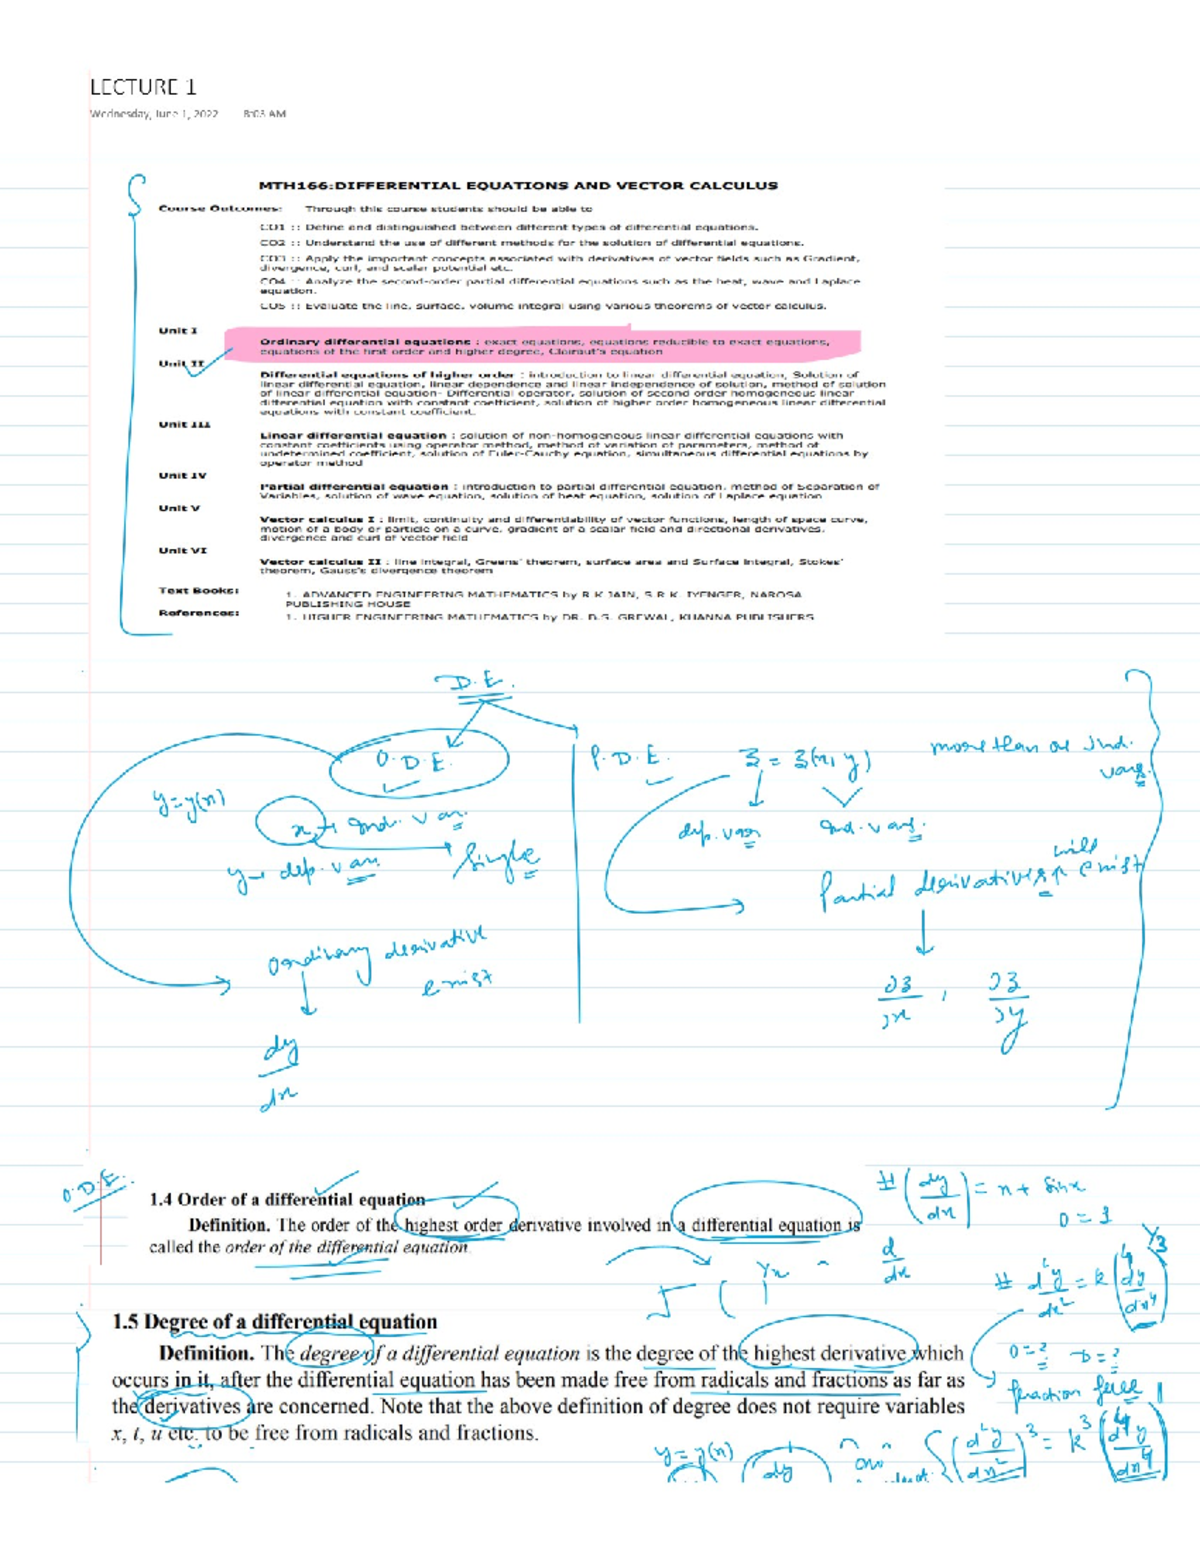 LECTURE 1
Wednesday, June 1, 2022 8:03 AM
MTH166:DIFFERENTIAL EQUATIONS AND VECTOR CALCULUS
Course Outcomes: Through this course students should be able to
CO1 :: Define and distinguished between different types of differential equations.
CO2 :: Understand the use of different methods for the solution of differential equations.
CO3 :: Apply the important concepts associated with derivatives of vector fields such as Gradient,
divergence, curl, and scalar potential etc.
CO4 :: Analyze the second-order partial differential equations such as the heat, wave and Laplace
equation.
CO5 :: Evaluate the line, surface, volume integral using various theorems of vector calculus.
Unit I
Ordinary differential equations : exact equations, equations reducible to exact equations,
equations of the first order and higher degree, Clairaut's equation
Unit II
Differential equations of higher order : introduction to linear differential equation, Solution of
linear differential equation, linear dependence and linear independence of solution, method of solution
of linear differential equation- Differential operator, solution of second order homogeneous linear
differential equation with constant coefficient, solution of higher order homogeneous linear differential
equations with constant coefficient.
Unit III
Linear differential equation : solution of non-homogeneous linear differential equations with
constant coefficients using operator method, method of variation of parameters, method of
undetermined coefficient, solution of Euler-Cauchy equation, simultaneous differential equations by
operator method
Unit IV
Partial differential equation : introduction to partial differential equation, method of Separation of
Variables, solution of wave equation, solution of heat equation, solution of Laplace equation
Unit V
Vector calculus I : limit, continuity and differentiability of vector functions, length of space curve,
motion of a body or particle on a curve, gradient of a scalar field and directional derivatives,
divergence and curl of vector field
Unit VI
Vector calculus II : line integral, Greens' theorem, surface area and Surface Integral, Stokes'
theorem, Gauss's divergence theorem
Text Books: 1. ADVANCED ENGINEERING MATHEMATICS by R.K JAIN, S.R.K. IYENGER, NAROSA
PUBLISHING HOUSE
References: 1. HIGHER ENGINEERING MATHEMATICS by DR. B.S. GREWAL, KHANNA PUBLISHERS
D.E.
O.D.E.
P.D.E. z = z(x, y) more than one Ind.
vars.
y=y(x)
x → Ind. var.
y → dep. var. Single
dep. var ind. vars.
Partial derivatives will exist
Ordinary derivative
exist
∂z/∂x , ∂z/∂y
dy/dx
O.D.E.
1.4 Order of a differential equation
Definition. The order of the highest order derivative involved in a differential equation is
called the order of the differential equation.
# (dy/dx) = x + sinx
O = 1
d/dx
# d²y/dx² = k (d⁴y/dx⁴)^1/3
1.5 Degree of a differential equation
Definition. The degree of a differential equation is the degree of the highest derivative which
occurs in it, after the differential equation has been made free from radicals and fractions as far as
the derivatives are concerned. Note that the above definition of degree does not require variables
x, t, u etc. to be free from radicals and fractions.
O=? D=?
fraction free
y=y(x) dy
(d²y/dx²)³ = k³ (d⁴y/dx⁴)